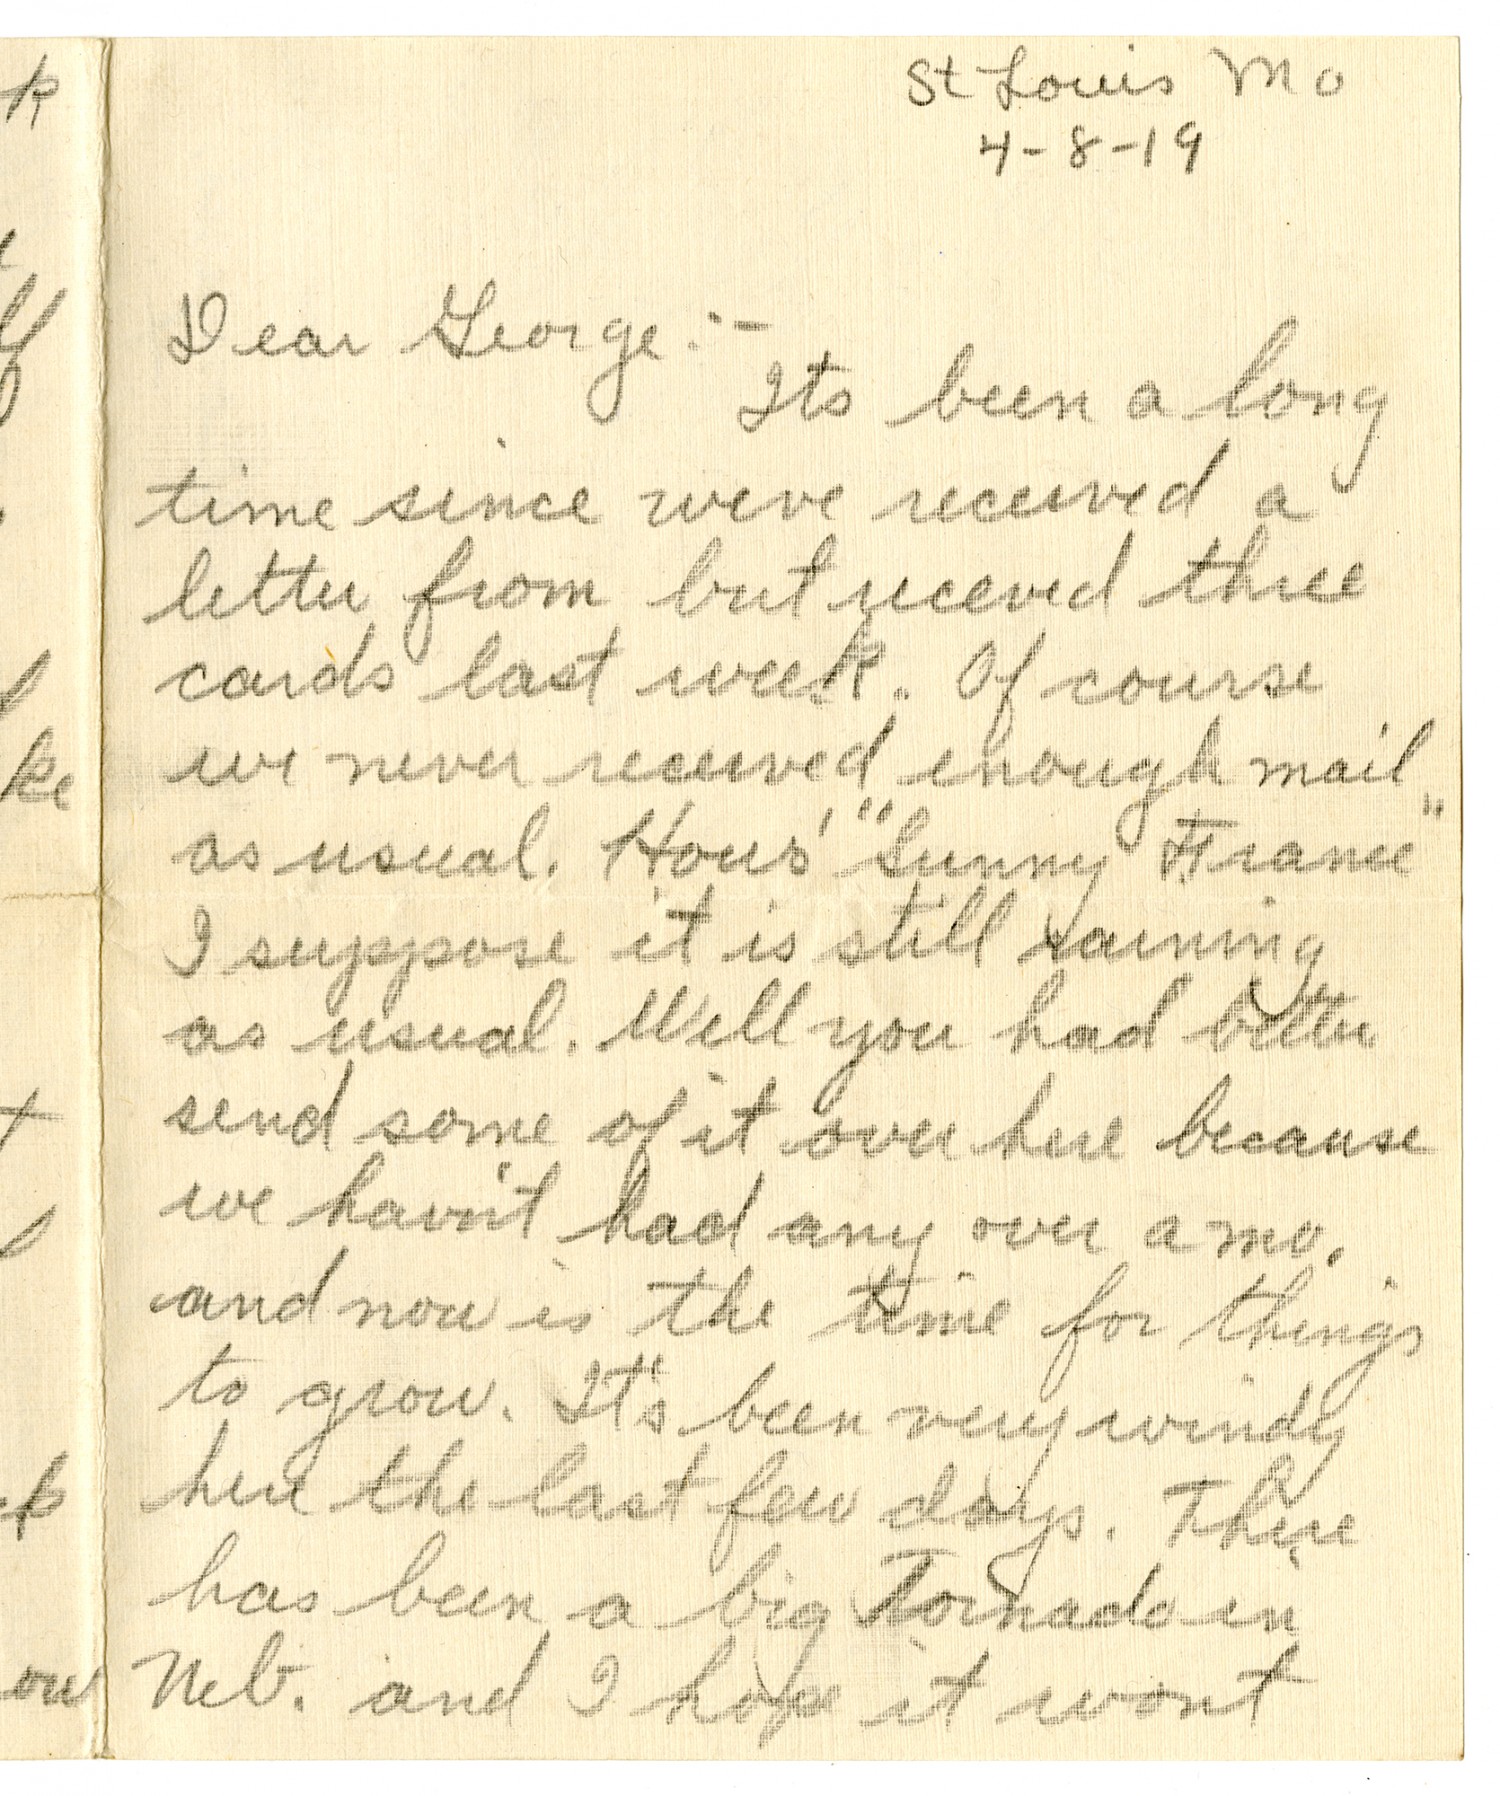 St Louis Mo
4-8-19
Dear George:-
Its been a long
time since weve received a
letter from but receved three
cards last week. Of course
we never received enough mail
as usual. Hows' "Sunny France"
I suppose it is still raining
as usual. Well you had better
send some of it over here because
we hav'nt had any over a mo.
and now is the time for things
to grow. It's been very windy
here the last few days. There
has been a big Tornado in
Neb. and I hope it wont